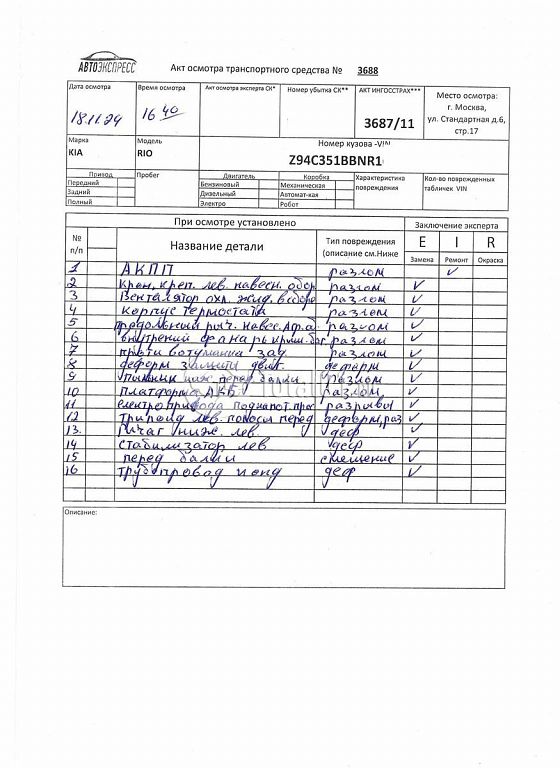 АВТОЭКСПРЕСС
Акт осмотра транспортного средства № 3688
Дата осмотра 18.11.24
Время осмотра 16 40
Акт осмотра эксперта СК*
Номер убытка СК**
АКТ ИНГОССТРАХ*** 3687/11
Место осмотра:
г. Москва,
ул. Стандартная д.6,
стр.17
Марка KIA
Модель RIO
Номер кузова -VIN
Z94C351BBNR1
Привод
Передний
Задний
Полный
Пробег
Двигатель
Бензиновый
Дизельный
Электро
Коробка
Механическая
Автомат-кая
Робот
Характеристика повреждения
Кол-во поврежденных табличек VIN
При осмотре установлено
Заключение эксперта
№ п/п
Название детали
Тип повреждения (описание см.Ниже
E I R
Замена Ремонт Окраска
1 АКПП разлом ✓
2 Крон. креп. лев. навесн. обор разлом ✓
3 Вентелятор охл. жид. в сборе разлом ✓
4 Корпус термостата разлом ✓
5 разлом ✓
6 разлом ✓
7 зад разлом ✓
8 деформ двиг. деформ ✓
9 ниж. перед. балки разлом ✓
10 Платформа АКБ разлом ✓
11 електропривода разрывы ✓
12 лев. перед деформ, раз ✓
13. Рычаг ниж. лев деф ✓
14 Стабилизатор лев деф ✓
15 перед балки смещение ✓
16 трубопровод деф ✓
Описание: